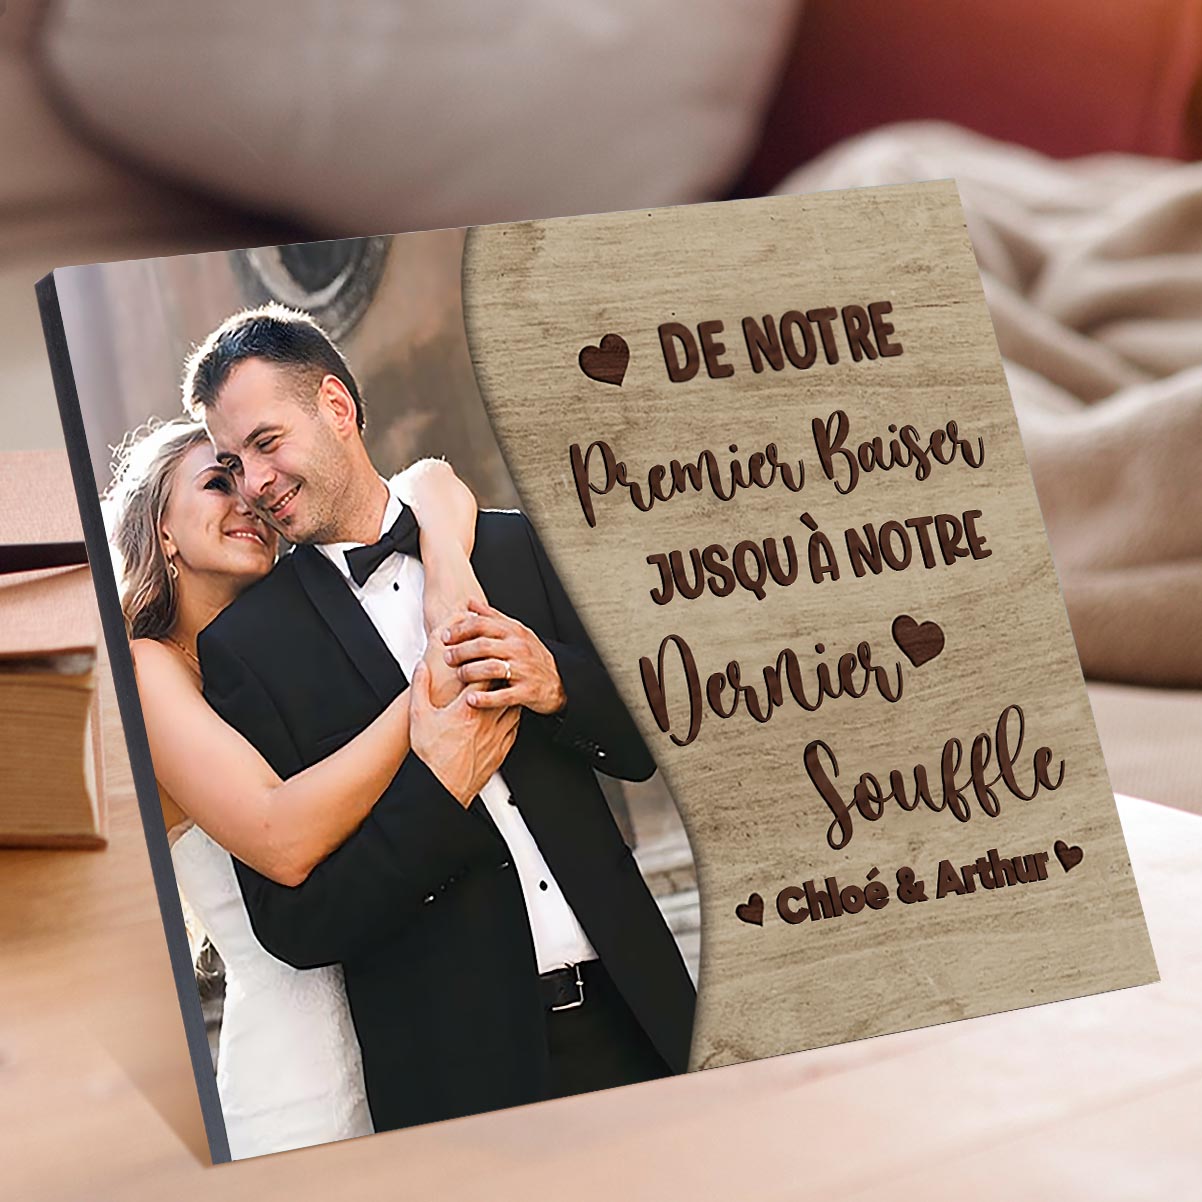 DE NOTRE
Premier Baiser
JUSQU'À NOTRE
Dernier
Souffle
Chloé & Arthur